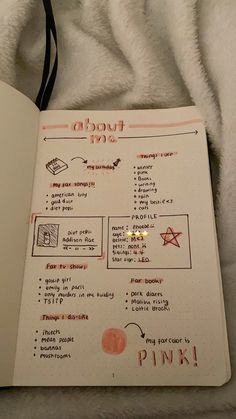 about
me
my birthday
Things I love
winter
pink
Books
writing
drawing
rain
my bestie <3
cats
My fav songs!!!
american boy
god duct
diet pepsi
Diet pepsi
Addison Rae
PROFILE
name:
age:
pets: none
Star sign: LEO
Fav tv shows:
gossip girl
emily in paris
only murders in the building
TSITP
Fav books:
park diares
Malibu rising
Lottie Brooks
Things I dis-like
insects
Mean people
bananas
mushrooms
My fav color is
PINK!
1